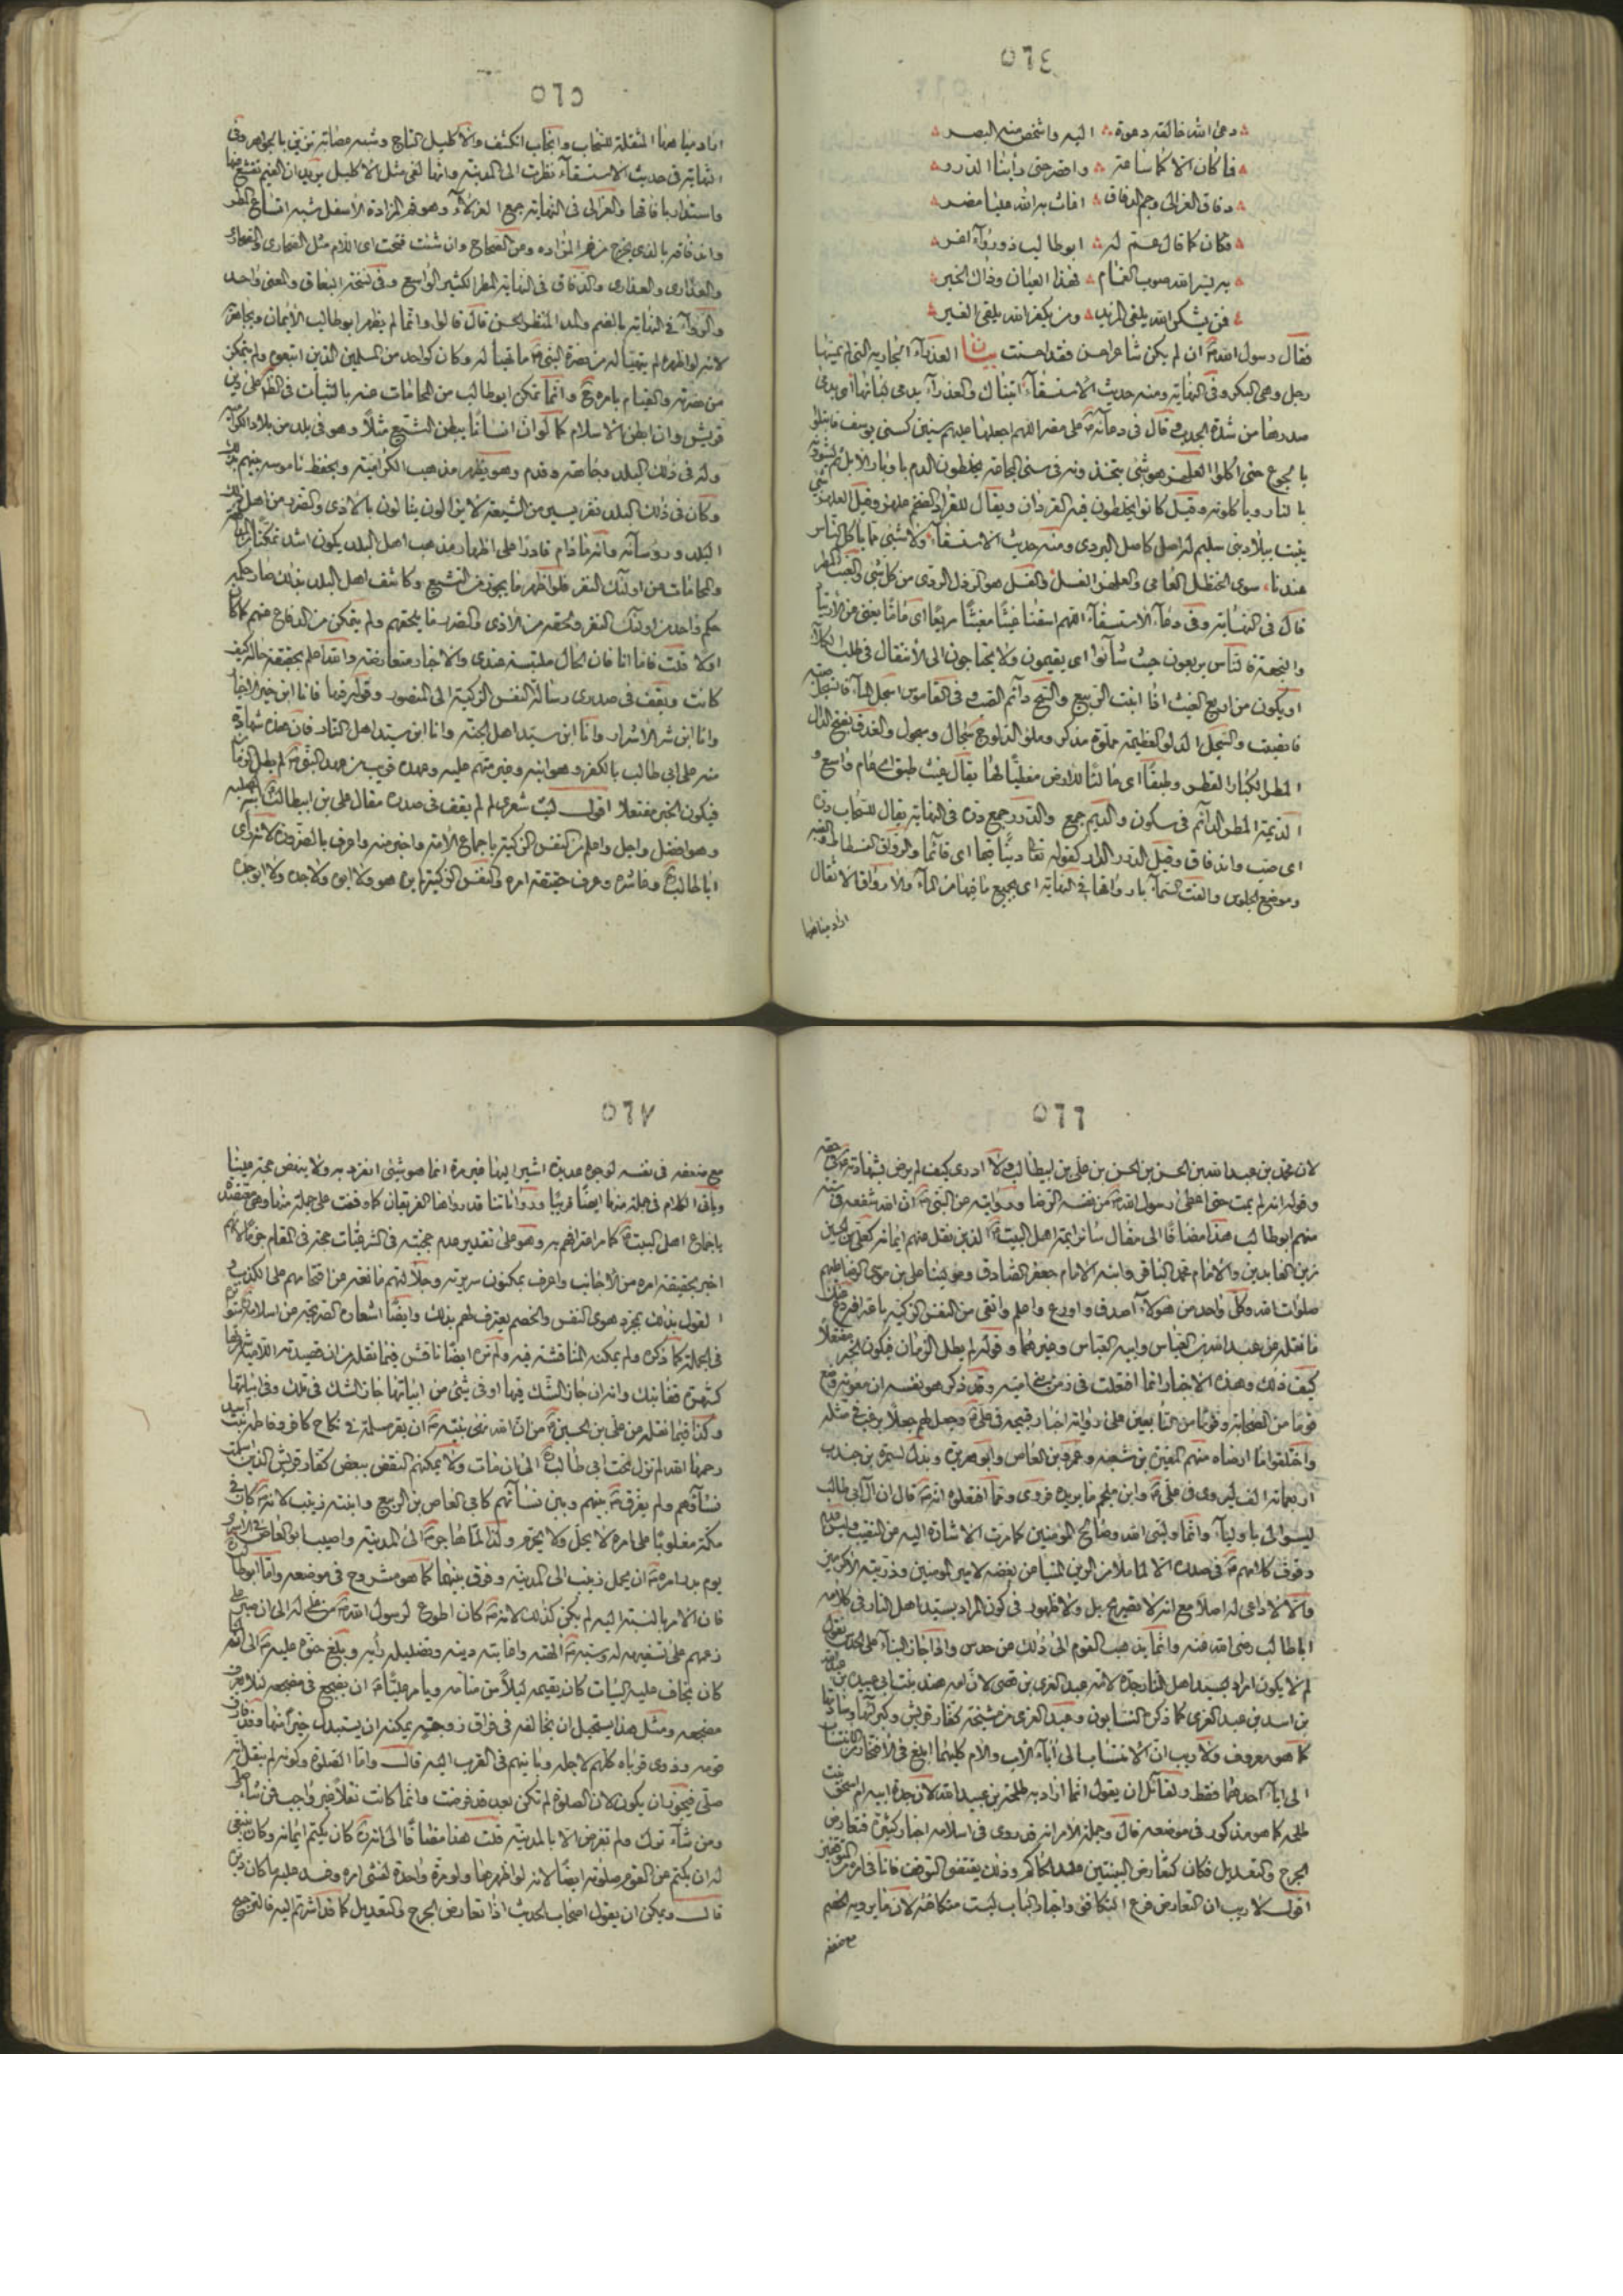 ٥٦٤
دعى الله خالقه دعوة اليه واشخص منه البصر
فما كان الا كما ساعة واضرحتى رأينا الدرر
دفاق العزالى وجم البعاق اغاث به الله عليا مضر
فكان كما قال عمه ابو طالب ذو رواء اغر
به يسر الله صوب الغمام فهذا العيان وذاك الخبر
فمن يشكر الله يلقى المزيد ومن يكفر الله يلقى الغير
فقال رسول الله ان لم يكن شاعر احسن فقد احسنت بيان العذراء الجارية التى لم يمسها
رجل وهى البكر وفى النهاية ومنه حديث الاستسقاء اتيناك والعذراء يدمى لبانها اى يدمى
صدرها من شدة الجدب وقال فى دعائه على مضر اللهم اجعلها عليهم سنين كسنى يوسف فابتلوا
بالجوع حتى اكلوا العلهز هو شئ يتخذونه فى سنى المجاعة يخلطون الدم باوبار الابل ثم يشوونه
بالنار وياكلونه وقيل كانوا يخلطون فيه القردان ويقال للقراد الضخم علهز وقيل العلهز شئ
ينبت ببلاد بنى سليم له اصل كاصل البردى ومنه حديث الاستسقاء ولا شئ مما ياكل الناس
عندنا سوى الحنظل العامى والعلهز الفسل والفسل هو الرذل الردى من كل شئ
قال فى النهاية وفى دعاء الاستسقاء اللهم اسقنا غيثا مغيثا مريعا اى عاما يغنى عن الارتياد
والنجعة فالناس يربعون حيث شاؤا اى يقيمون ولا يحتاجون الى الانتقال فى طلب الكلاء
او يكون من اربع الغيث اذا انبت الربيع والسح دائم الصب وفى القاموس اسجل الماء فانسجل صبه
فانصب والسجل الدلو العظيمة مملوة مذكر وملؤ الدلو ج سجال وسجول والغدق بفتح الدال
المطر الكبار القطر وطبقا اى مالئا للارض مغطيا لها يقال غيث طبق اى عام واسع و
الديمة المطر الدائم فى سكون والديم جمع والدرر جمع درة فى النهاية يقال للسحاب درة
اى صب واندفاق وقيل الدرر الدار كقوله تعالى دينا قيما اى قائما والرواق الفسطاط والقبة
وموضع الجلوس والقت السماء بارواقها فى النهاية اى بجميع ما فيها من الماء والارواق الاثقال
اراد مياهها
٥٦٥
اراد مياهها المثقلة للسحاب وانجاب انكشف والاكليل التاج وشبه عصابة تزين بالجواهر وفى
النهاية فى حديث الاستسقاء نظرت الى المدينة وانها لفى مثل الاكليل يريد ان الغيم تقشع عنها
واستدار بافاقها والعزالى فى النهاية جمع العزلاء وهو فم المزادة الاسفل شبه اتساع المطر
واندفاقه بالذى يخرج من فم المزاده وان شئت فتحت اى اللام مثل الصحارى والصحارى
والعذارى والعذارى والدفاق فى النهاية المطر الكثير الواسع وفى نسخة البعاق والمعنى واحد
والرواء فى النهاية بالضم والمد المنظر الحسن قال قالوا وانما لم يظهر ابو طالب الايمان ويجاهر به
لانه لو اظهره لم يتهيا له من نصرة النبى ما تهيا له وكان كواحد من المسلمين الذين اتبعوه ولم يتمكن
من نصرته والقيام بامره وانما تمكن ابو طالب من المحامات عنه بالثبات فى الظاهر على دين
قريش وان ابطن الاسلام كما لو ان انسانا يبطن التشيع مثلا وهو فى بلد من بلاد الكرامية
وله فى ذلك البلد وجاهة وقدم وهو يظهر مذهب الكرامية ويحفظ ناموسه بينهم بذلك
وكان فى ذلك البلد نفر يسير من الشيعة لا يزالون ينالون بالاذى والضرر من اهل ذلك
البلد ورؤسائه وانه ما دام قادرا على اظهار مذهب اهل البلد يكون اشد تمكنا من المدافعة
والمحامات عن اولئك النفر فلو اظهر ما يجوز من التشيع وكاشف اهل البلد بذلك صار حكمه
حكم واحد من اولئك النفر ولحقه من الاذى والضرر ما يلحقهم ولم يتمكن من الدفاع عنهم كما كان
اولا قلت فاما انا فان الحال ملتبسة عندى والاخبار متعارضة والله اعلم بحقيقة حاله كيف
كانت ويقف فى صدرى رسالة النفس الزكية الى المنصور وقوله فيها فانا ابن خير الاخيار
وانا ابن شر الاشرار وانا ابن سيد اهل الجنة وانا ابن سيد اهل النار فان هذه شهادة
منه على ابى طالب بالكفر وهو ابنه وغير متهم عليه وعهده قريب من عهد النبى لم يطل الزمان
فيكون الخبر مفتعلا اقول ليت شعرى لم لم يقف فى صدره مقال على بن ابيطالب لابيه
وهو افضل واجل واعلم من النفس الزكية باجماع الامة واخبر منه واعرف بالضرورة لانه راى
اباطالب وعاشره وعرف حقيقة امره والنفس الزكية لم يره هو ولا ابوه ولا جده ولا ابو جده
٥٦٦
لان محمد بن عبد الله بن الحسن بن الحسن بن على بن ابيطالب ولا ادرى كيف لم يرض بشهادة على فى حقه
وقوله انه لم يمت حتى اعطى رسول الله من نفسه الرضا وروايته عن النبى ان الله شفعه فى ستة
منهم ابو طالب هذا مضافا الى مقال سائر ائمة اهل البيت الذين نقل عنهم ايمانه كعلى بن الحسين
زين العابدين والامام محمد الباقر وابنه الامام جعفر الصادق وعلى بن موسى الرضا عليهم
صلوات الله وكل واحد من هؤلاء اصدق واورع واعلم واتقى من النفس الزكية
ما نقله عن عبد الله بن العباس وابيه العباس وغيرهما وقوله لم يطل الزمان فيكون الخبر مفتعلا
كيف ذلك وهذه الاخبار انما افتعلت فى زمن بنى امية وقد ذكر هو نفسه ان معوية وضع
قوما من الصحابة وقوما من التابعين على رواية اخبار قبيحة فى على وجعل لهم جعلا يرغب فى مثله
واختلقوا ما ارضاه منهم المغيرة بن شعبة وعمرو بن العاص وابو هريرة وبذل لسمرة بن جندب
اربعمائة الف ليروى فى على وابن ملجم ما يريده فروى ومما افتعلوه انه قال ان آل ابى طالب
ليسوا لى باولياء وانما وليى الله وصالح المؤمنين كما مرت الاشارة اليه من النقيب وليس
وقوف كلامهم فى صدره الا لما ملا من الرين المنبا عن بغضه لامير المؤمنين وذريته الاكرمين
والا لا داعى له اصلا مع انه لا تصريح بل ولا ظهور فى كون المراد بسيد اهل النار فى كلامه
ابا طالب رضى الله عنه وانما يذهب القوم الى ذلك عن حدس واذا جاز البناء على الحدس نقول
لم لا يكون اراد بسيد اهل النار جده لامه عبد العزى بن قصى لان امه هند بنت ابى عبيدة بن
بن اسد بن عبد العزى كما ذكره النسابون وعبد العزى من مشيخة كفار قريش وكبرائها وساداتها
كما هو معروف ولا ريب ان الانتساب الى اباء الاب والام كليهما ابلغ فى الافتخار من الانتساب
الى اباء احدهما فقط ولقائل ان يقول انما اراد به طلحة بن عبيد الله لان جدة ابيه ام اسحق بنت
طلحة كما هو مذكور فى موضعه قال وجملة الامر انه قد روى فى اسلامه اخبار كثيرة فتعارض
الجرح والتعديل فكان كتعارض البينتين عند الحاكم وذلك يقتضى التوقف فانا فى امره من المتوقفين
اقول لا ريب ان التعارض فرع التكافى واخبار الباب ليست متكافئة لان ما يرويه الخصم
مع ضعفه
٥٦٧
مع ضعفه فى نفسه لوجوه عديدة اشير اليها غير مرة انما هو شئ انفرد به ولا ينهض حجة علينا
وياتى الكلام فى جملة منها ايضا قريبا ورواياتنا قد رواها الفريقان كما وقفت على جملة منها وهى معتضدة
باجماع اهل البيت كما مر اعترافهم به وهو على تقدير عدم حجيته فى الشرعيات حجة فى المقام
اخبر بحقيقة امره من الاجانب واعرف بمكنون سريرته وجلالتهم مانعة عن اقتحامهم على الكذب و
القول بذلك بمجرد هوى النفس والخصم يعترف لهم بذلك وايضا اشعاره الصريحة عن اسلامه متواترة
فى الجملة كما ذكره ولم يمكنه المناقشة فيه ولم نره ايضا ناقش فيما نقله من ان قصيدته اللامية شهرتها
كشهرة قفا نبك وانه ان جاز الشك فيها او فى شئ من ابياتها جاز الشك فى تلك وفى ابياتها
وكذا فيما نقله عن على بن الحسين من ان الله نهى نبيه ان يقر مسلمة فى نكاح كافر وفاطمة بنت اسد
رحمها الله لم تزل تحت ابى طالب الى ان مات ولا يمكنهم النقض ببعض كفار قريش الذين اسلمت
نساؤهم ولم يفرق بينهم وبين نسائهم كابى العاص بن الربيع وابنته زينب لانه كان فى
مكة مغلوبا على امره لا يحل ولا يحرم ولذا لما هاجر الى المدينة واصيب ابو العاص فى الاسر
يوم بدر امره ان يحمل زينب الى المدينة وفرق بينهما كما هو مشروح فى موضعه واما ابو طالب
فان الامر بالنسبة اليه لم يكن كذلك لانه كان اطوع لرسول الله
زعمهم على تسفيهه له وسبه الهته واعابته دينه وتضليله رايه وبلغ حنوه عليه الى انه
كان يخاف عليه البيات كان يقيمه ليلا من منامه ويامر عليا ان يضجع فى مضجعه
مضجعه ومثل هذا يستحيل ان يخالفه فى فراق زوجته يمكنه ان يستبدل خيرا منها وقد فارق
قومه وذوى قرباه كلهم لاجله وباينهم فى القرب اليه قال واما الصلوة وكونه لم ينقل انه
صلى فيجوز ان يكون لان الصلوة لم تكن بعد قد فرضت وانما كانت نفلا غير واجب فمن شاء صلى
ومن شاء ترك ولم تفرض الا بالمدينة قلت هذا مضافا الى انه كان يكتم ايمانه وكان ينبغى
له ان يكتم عن القوم صلوته ايضا لانه لو اظهرها ولو مرة واحدة لفشى امره وفسد عليه ما كان
قال ويمكن ان يقول اصحاب الحديث اذا تعارض الجرح والتعديل كما قد اشرتم اليه فالترجيح